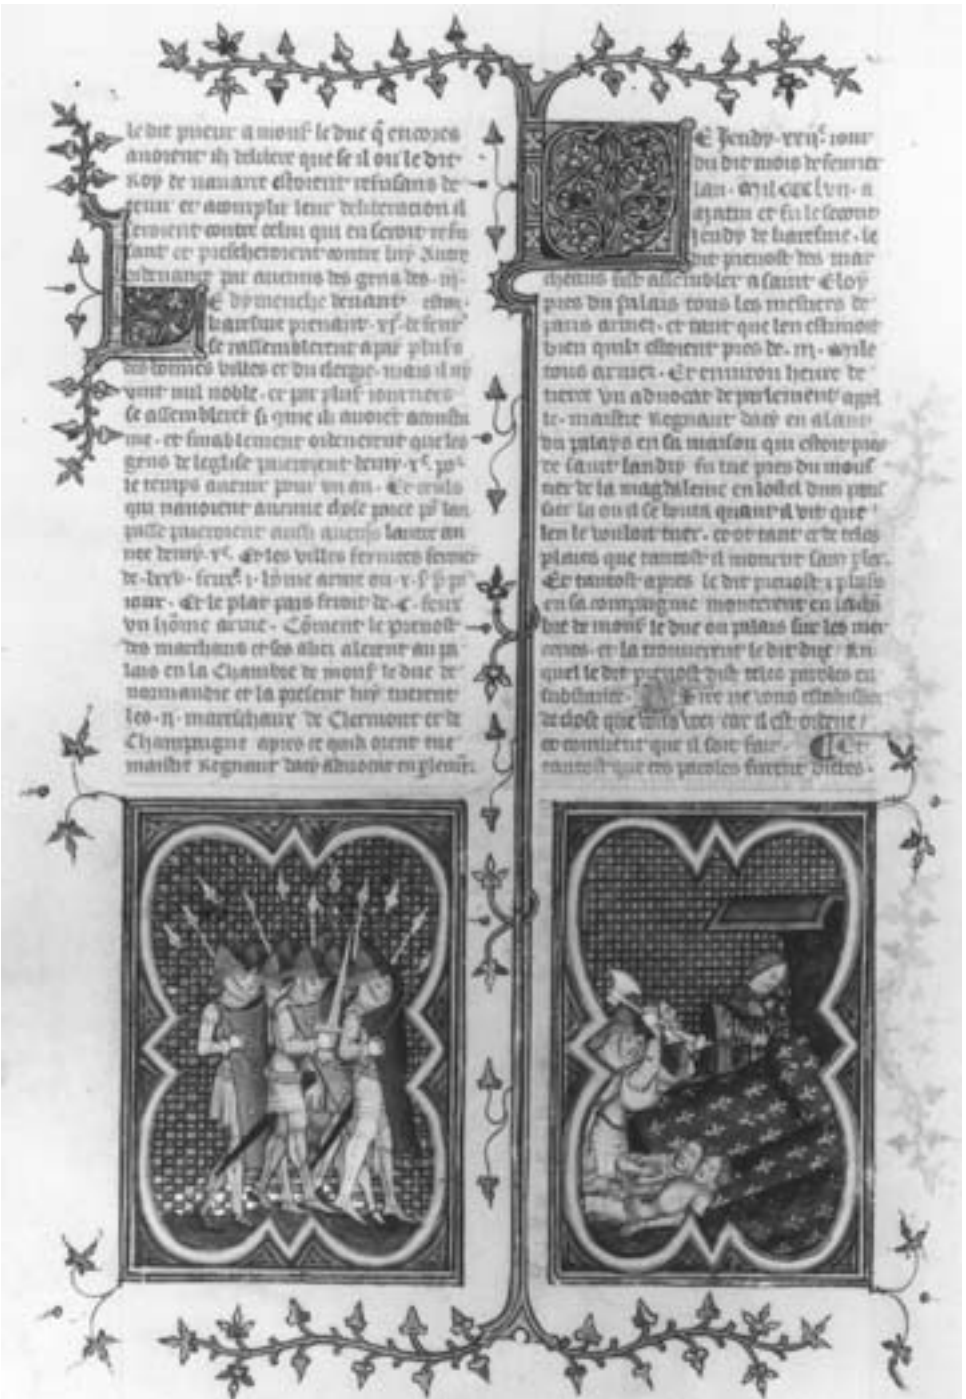 le dit prieur a mons le duc q̃ encores
avoient ilz delibere que se il ou le dit
Roy de navarre estoient refusans de
tenir et acomplir leur deliberacion il
seroient contre celui qui en seroit refu
sant et prescheroient contre luy Autre
ordenance par aucuns des gens des .iij.
E dymenche devant
karesme prenant . xjᵉ. de fevr̃
se rassemblerent a par̃ plus̃s
des bonnes villes et du clergie . mais il n'y
vint nul noble . et par plus̃ iournees
se assemblerẽt si que ilz avoiẽt acoustu
me . et finablement ordenerent que les
gens de leglise paieroient demy . xᵉ. poᵘ
le temps avenir pour un an . Et ceulx
qui navoient aucune chose paie po lan
passe paieroient aussi avecqs lautre an
nee demy . xᵉ. Et les villes fermees feroiẽt
de .lxxv. feux . i. hõme arme ou .x. s̃ p̃
iour . Et le plat pais feroit de .C. feux
un hõme arme . Cõment le prevost
des marchans et ses aliez alerent au pa
lais en la Chambre de mons le duc de
normandie et la present luy tuerent
les .ij. mareschaux de Clermont et de
Champaigne apres ce quilz orent tue
maistre Regnaut dacy advocat en plem̃.
E Jeudy . xxijᵉ. iour
du dit mois de fevrier
lan . Mil ccc lvij . a
matin et fu le second
jeudy de karesme . le
dit prevost des mar
cheans fist assembler a saint Eloy
pres du palais tous les mestiers de
paris armez . et tant que len estimoit
bien quilz estoient pres de . iij . Mile
tous armez . Et environ heure de
tierce un advocat de parlement appel
le . maistre Regnaut dacy en alant
du palays en sa maison qui estoit pres
de saint landry fu tue pres du mous
tier de la magdalenne en lostel dun patis
sier la ou il se bouta quant il vit que
len le vouloit tuer . et ot tant et de teles
plaies que tantost il mourut sanz pler̃
Et tantost apres le dit prevost et plus̃s
en sa compaignie monterent en la chã
bre de mons le duc ou palais sur les mer
ceries . et la trouverent le dit duc Au
quel le dit prevost dist teles paroles en
substance . Sire ne vous esbahissiez
de chose que vous veez car il est ordene
et convient que il soit fait . Et
tantost que ces paroles furent dictes .